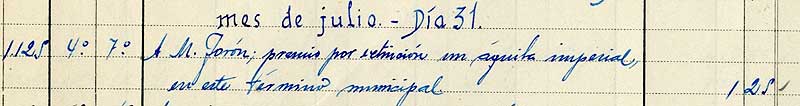 mes de julio. - Día 31.
1.125 4º 7º A M. Forón; premio por extinción un águila imperial,
en este término municipal. 125